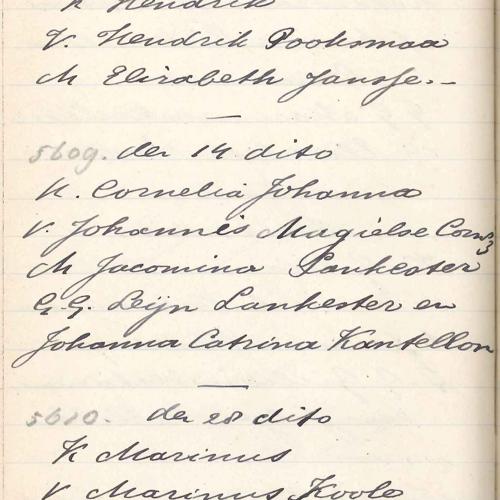 K Hendrik
V. Hendrik Pooksmaa
M Elizabeth Jansse.-
5609. den 14 dito
K. Cornelia Johanna
V. Johannis Magielse Cornz
M Jacomina Lankester
G.G. Leijn Lankester en
Johanna Catrina Kantellon
5610. den 28 dito
K Marinus
V Marinus Koole